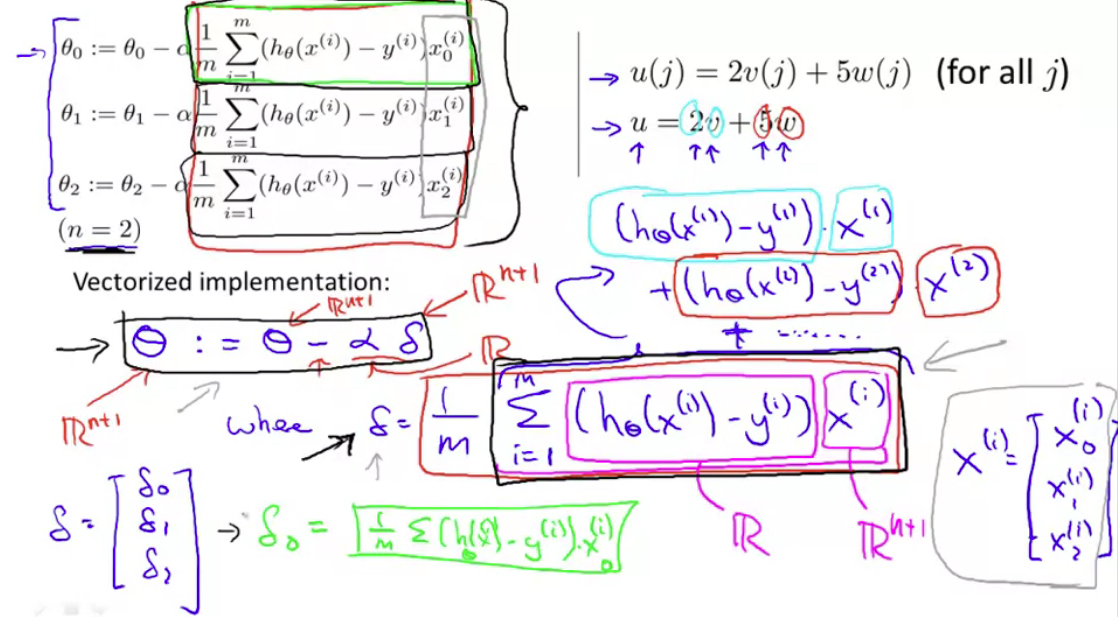 θ₀ := θ₀ − α 1/m ∑ᵢ₌₁ᵐ (h_θ(x⁽ⁱ⁾) − y⁽ⁱ⁾) x₀⁽ⁱ⁾
θ₁ := θ₁ − α 1/m ∑ᵢ₌₁ᵐ (h_θ(x⁽ⁱ⁾) − y⁽ⁱ⁾) x₁⁽ⁱ⁾
θ₂ := θ₂ − α 1/m ∑ᵢ₌₁ᵐ (h_θ(x⁽ⁱ⁾) − y⁽ⁱ⁾) x₂⁽ⁱ⁾
(n = 2)
→ u(j) = 2v(j) + 5w(j) (for all j)
→ u = 2v + 5w
(h_θ(x⁽¹⁾) − y⁽¹⁾) · x⁽¹⁾
+ (h_θ(x⁽²⁾) − y⁽²⁾) x⁽²⁾
+ ........
Vectorized implementation:
ℝⁿ⁺¹ ℝⁿ⁺¹
→ θ := θ − α δ
ℝⁿ⁺¹ ℝ
where → δ = 1/m ∑ᵢ₌₁ᵐ (h_θ(x⁽ⁱ⁾) − y⁽ⁱ⁾) x⁽ⁱ⁾
ℝ ℝⁿ⁺¹
x⁽ⁱ⁾ = [x₀⁽ⁱ⁾ x₁⁽ⁱ⁾ x₂⁽ⁱ⁾]
δ = [δ₀ δ₁ δ₂] → δ₀ = 1/m ∑ (h_θ(x⁽ⁱ⁾) − y⁽ⁱ⁾) · x₀⁽ⁱ⁾